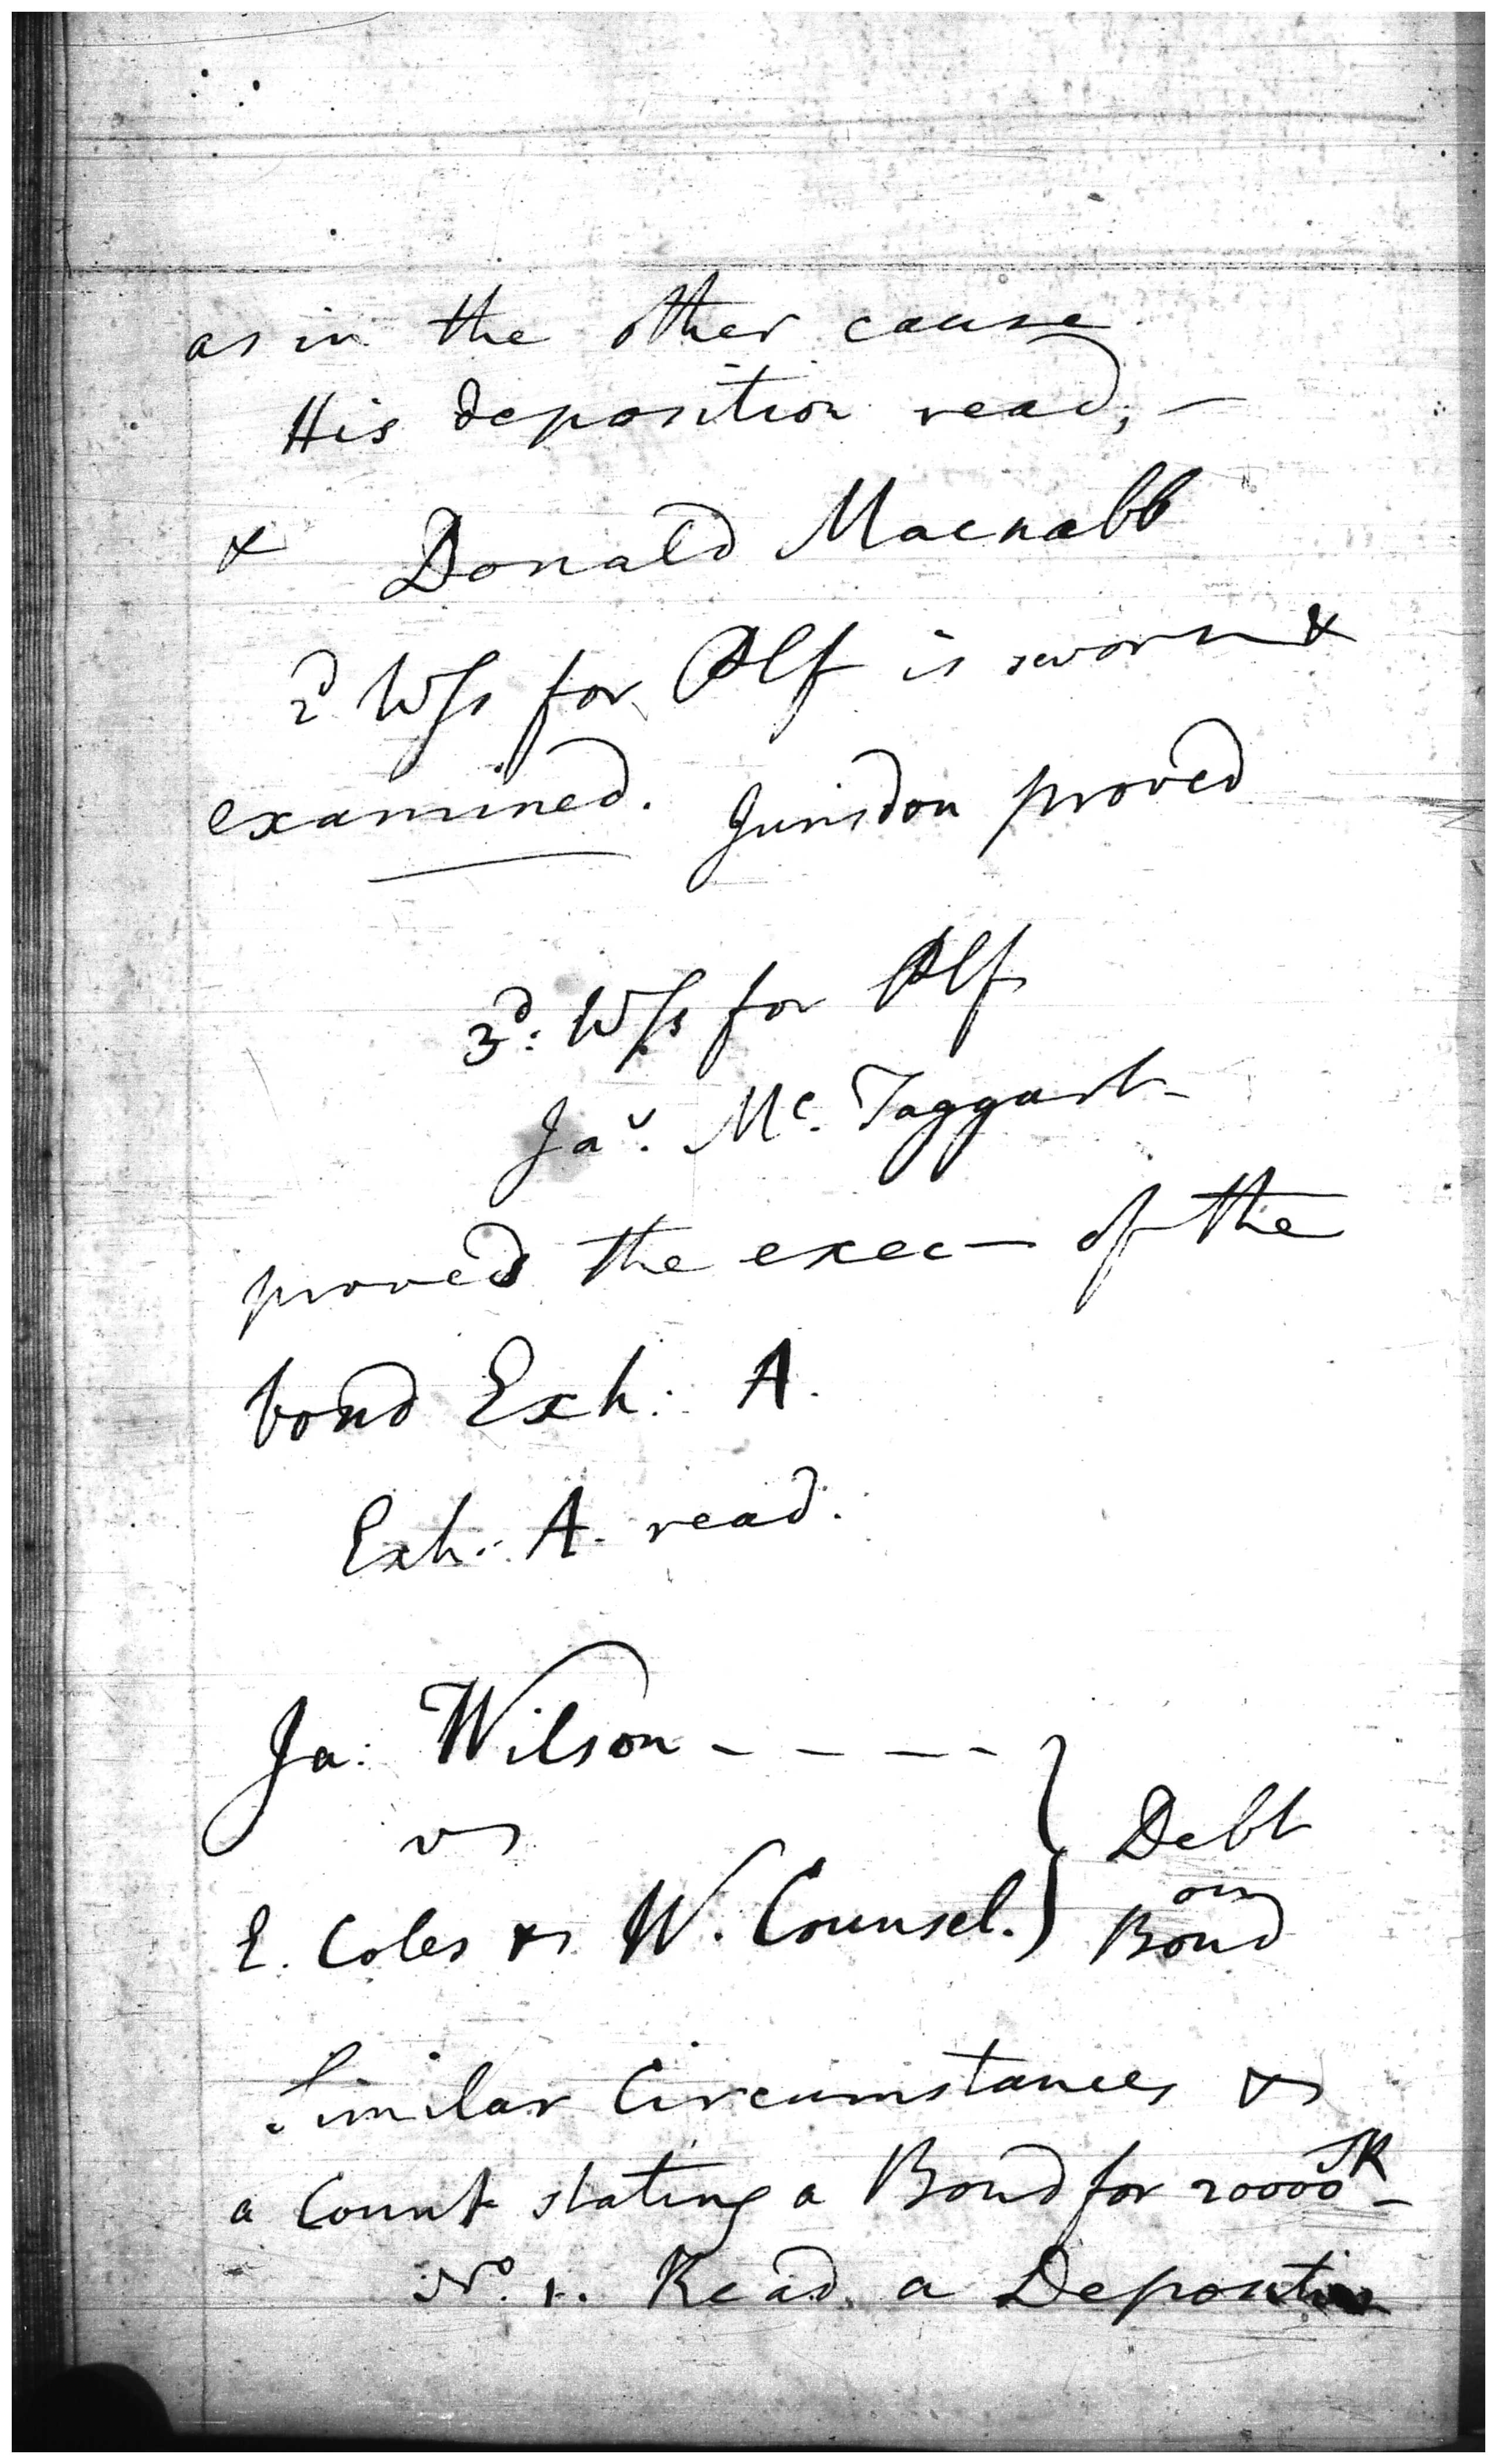 as in the other cause
His deposition read; —
x Donald Macnabb
2d Wss for Plf is sworn &
examined. Jurisdon proved
3d: Wss for Plf
Jas. Mc. Taggart
proved the exec— of the
bond Exh: A.
Exh: A. read.
Ja: Wilson - - - -
vs
E. Coles & W. Counsel. } Debt
on
Bond
Similar Circumstances &
a Count stating a Bond for 20000 —
No. 1. Read a Deposition